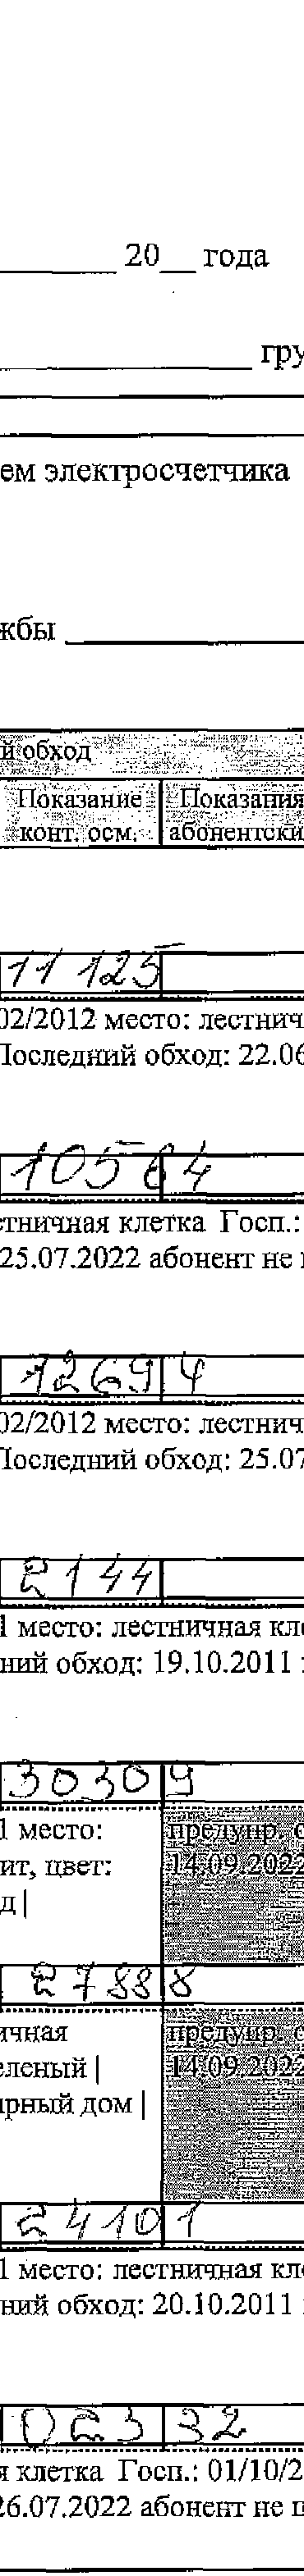 20__ года
гру
ем электросчетчика
жбы
й обход
Показание Показания
конт. осм. абонентски
11 125
02/2012 место: лестнич
Последний обход: 22.06
10564
стничная клетка Госп.:
25.07.2022 абонент не
12694
02/2012 место: лестнич
Последний обход: 25.07
2144
1 место: лестничная кле
ний обход: 19.10.2011
30309
1 место: предупр. о
ит, цвет: 14.09.2022
д |
27888
ичная предупр. о
еленый | 14.09.2022
ирный дом |
24101
1 место: лестничная кле
ний обход: 20.10.2011
02332
я клетка Госп.: 01/10/2
26.07.2022 абонент не п